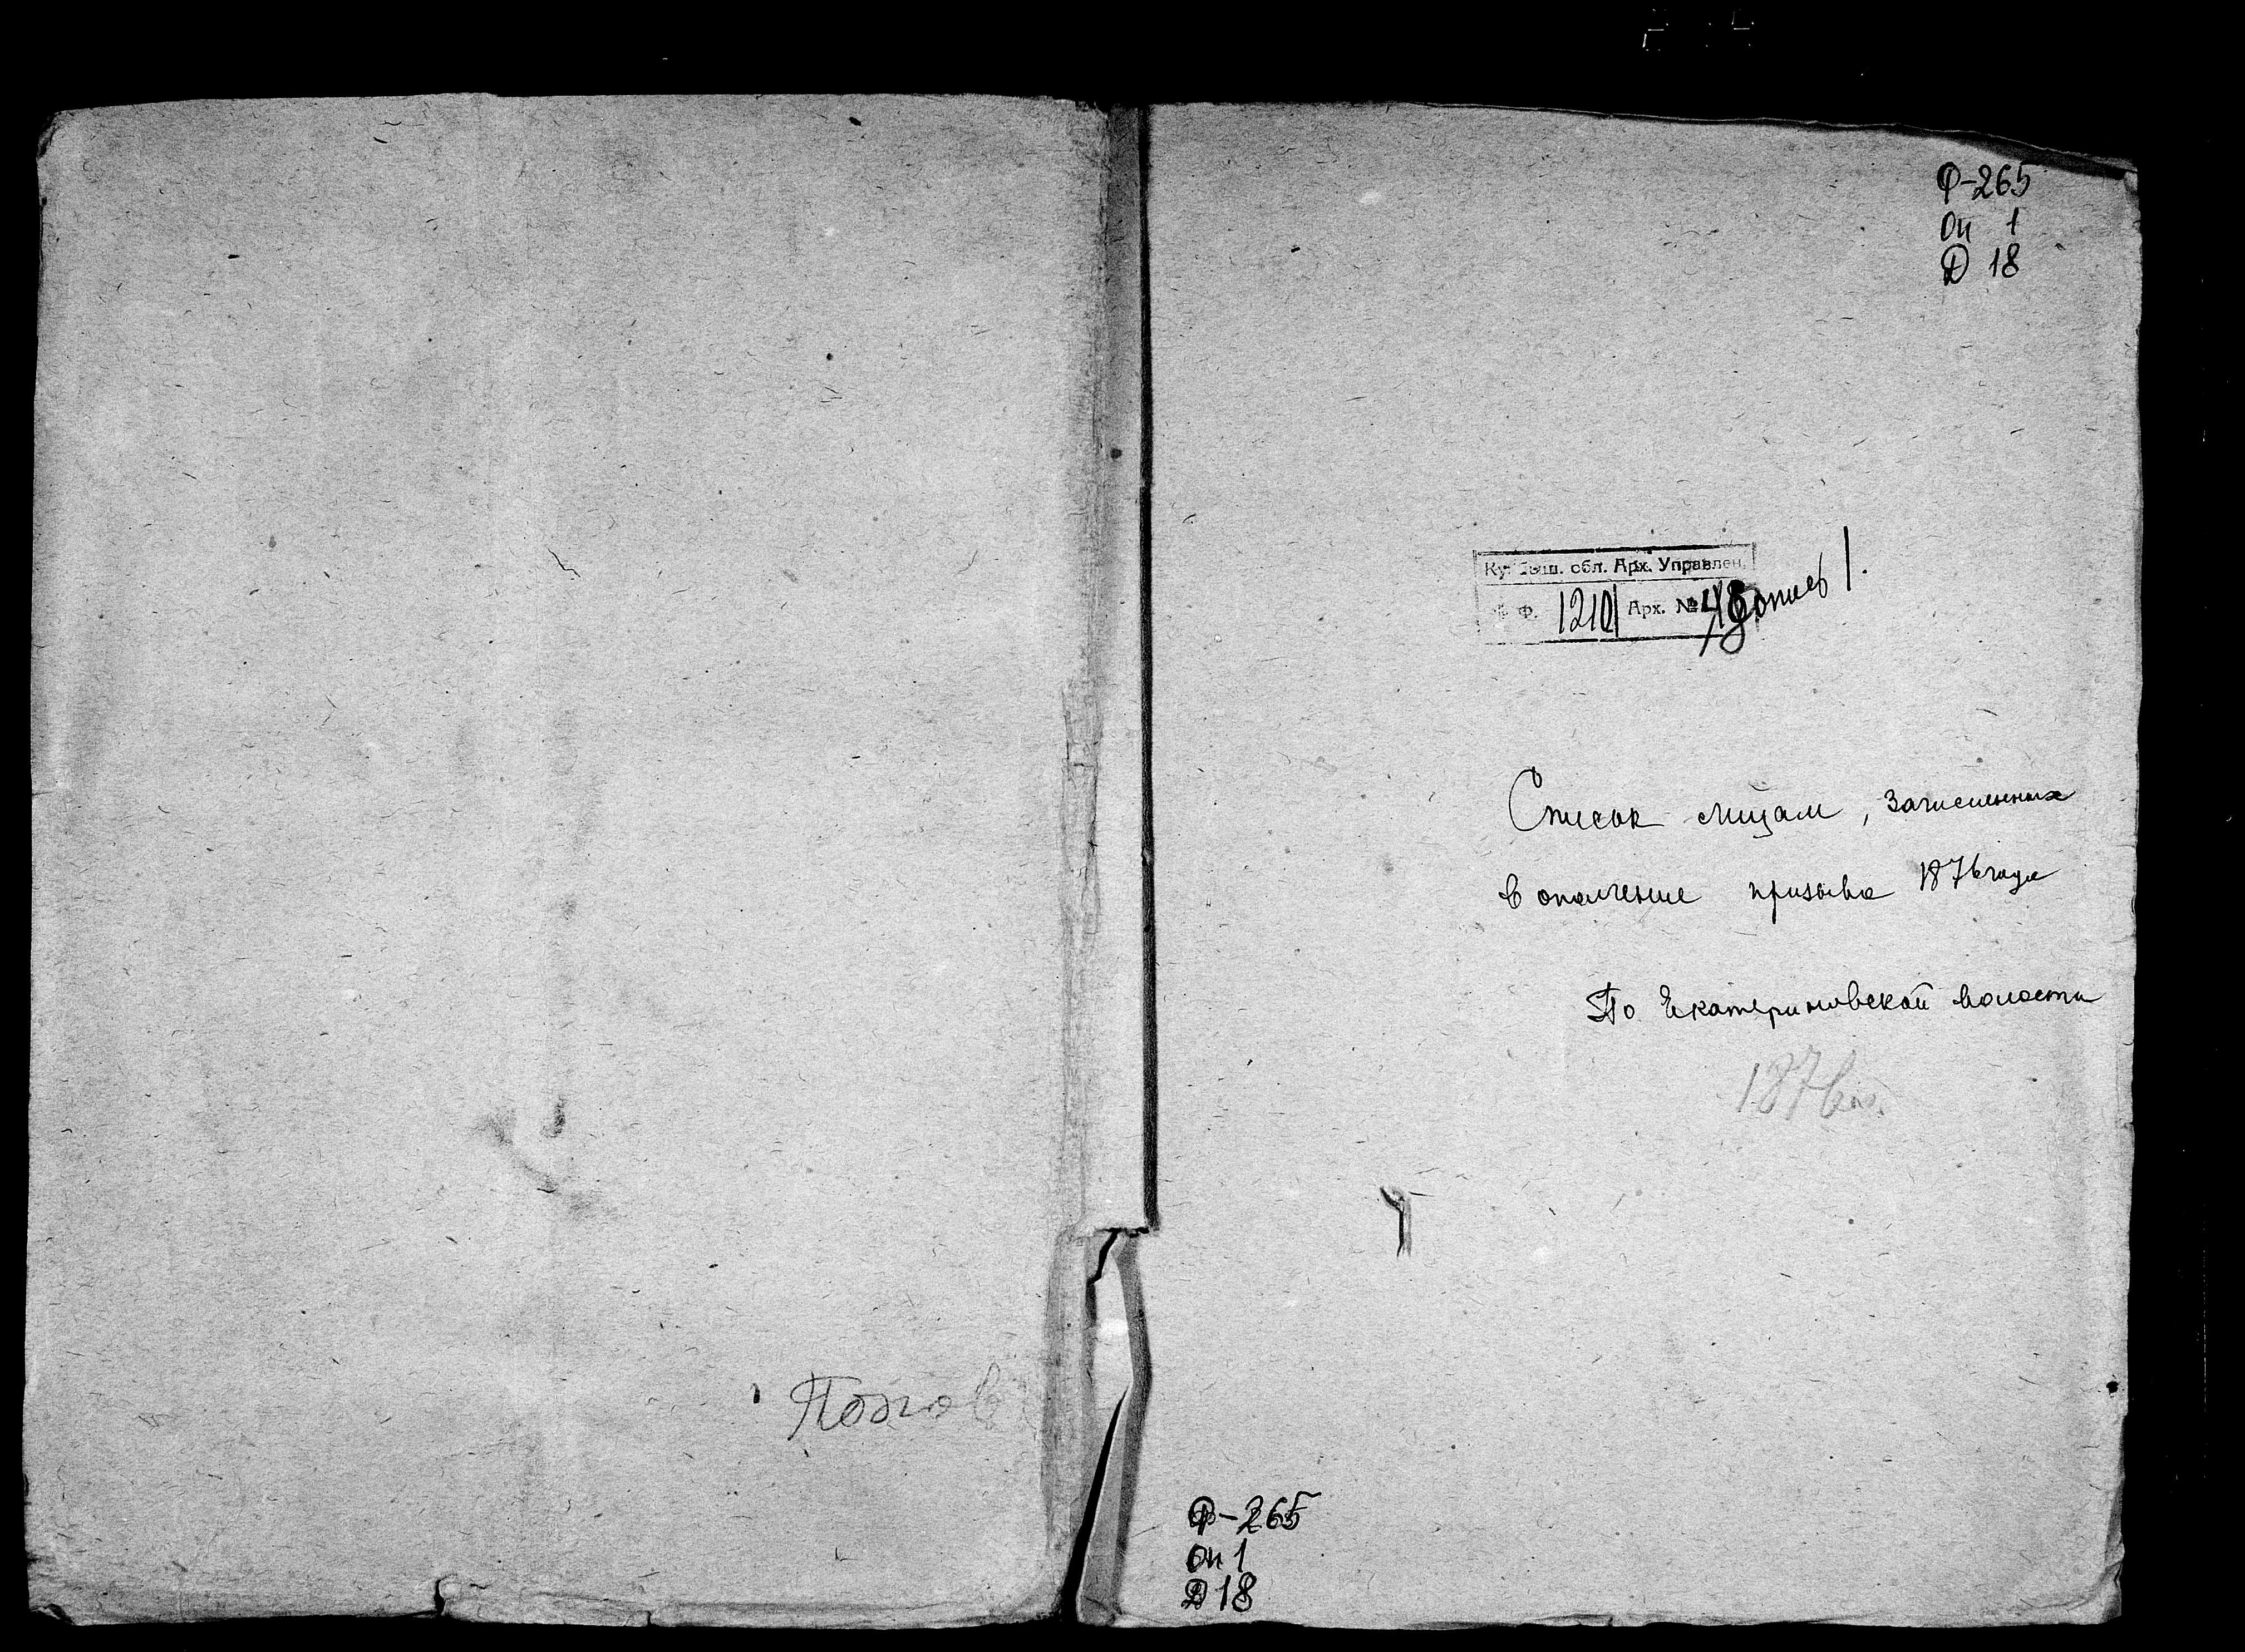 Ф-265
Оп 1
Д 18
Куйбыш. обл. Арх. Управлен.
Ф. 1210 Арх. № 18 опись 1.
Список лицам, зачисленных
в ополчение призыва 1876 года
По Екатериновской волости
1876
Ф-265
Оп 1
Д 18